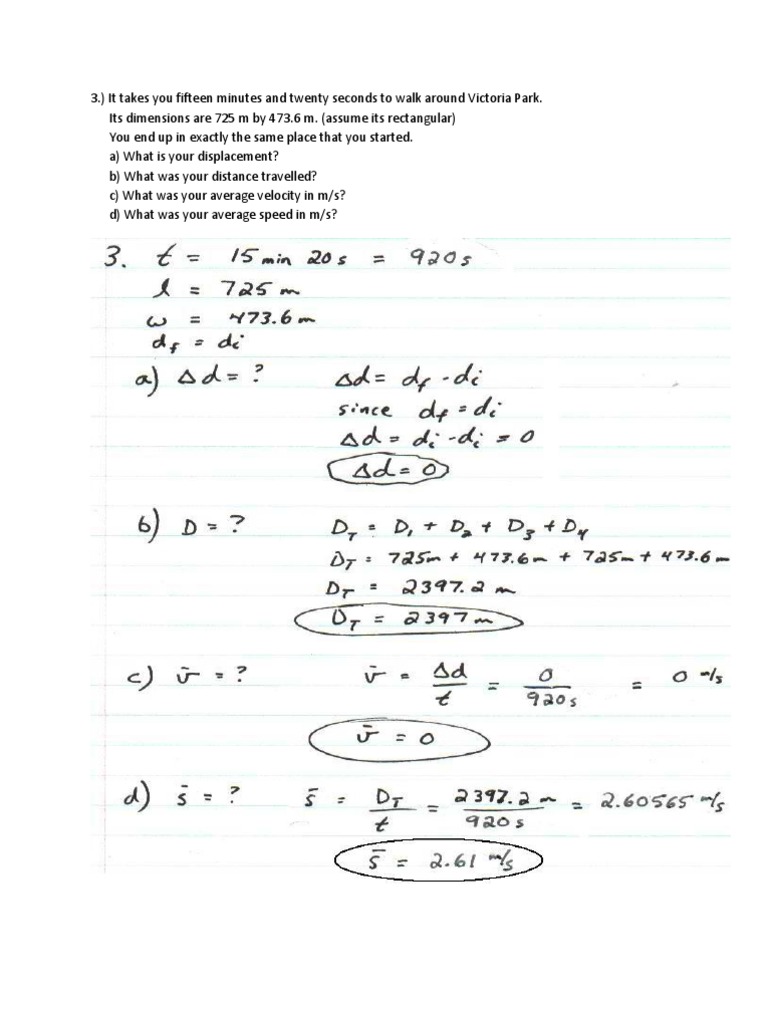 3.) It takes you fifteen minutes and twenty seconds to walk around Victoria Park.
Its dimensions are 725 m by 473.6 m. (assume its rectangular)
You end up in exactly the same place that you started.
a) What is your displacement?
b) What was your distance travelled?
c) What was your average velocity in m/s?
d) What was your average speed in m/s?
3. t = 15 min 20 s = 920 s
l = 725 m
w = 473.6 m
df = di
a) Δd = ? Δd = df - di
since df = di
Δd = di - di = 0
Δd = 0
b) D = ? DT = D1 + D2 + D3 + D4
DT = 725m + 473.6m + 725m + 473.6m
DT = 2397.2 m
DT = 2397 m
c) v̄ = ? v̄ = Δd/t = 0/920s = 0 m/s
v̄ = 0
d) s̄ = ? s̄ = DT/t = 2397.2 m/920 s = 2.60565 m/s
s̄ = 2.61 m/s